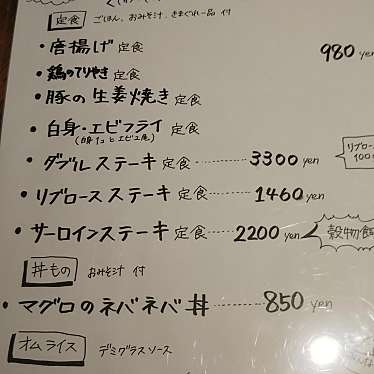 定食 ごはん、おみそ汁、きまぐれ一品 付
・唐揚げ 定食 980 yen
・鶏のてりやき 定食
・豚の生姜焼き 定食
・白身・エビフライ 定食
(白身1つとエビ2尾)
・ダブルステーキ 定食 ……… 3300 yen
リブロース
100
・リブロースステーキ 定食 ……… 1460 yen
・サーロインステーキ 定食 …… 2200 yen
穀物飼
丼もの おみそ汁 付
・マグロのネバネバ丼 ……… 850 yen
オムライス デミグラスソース